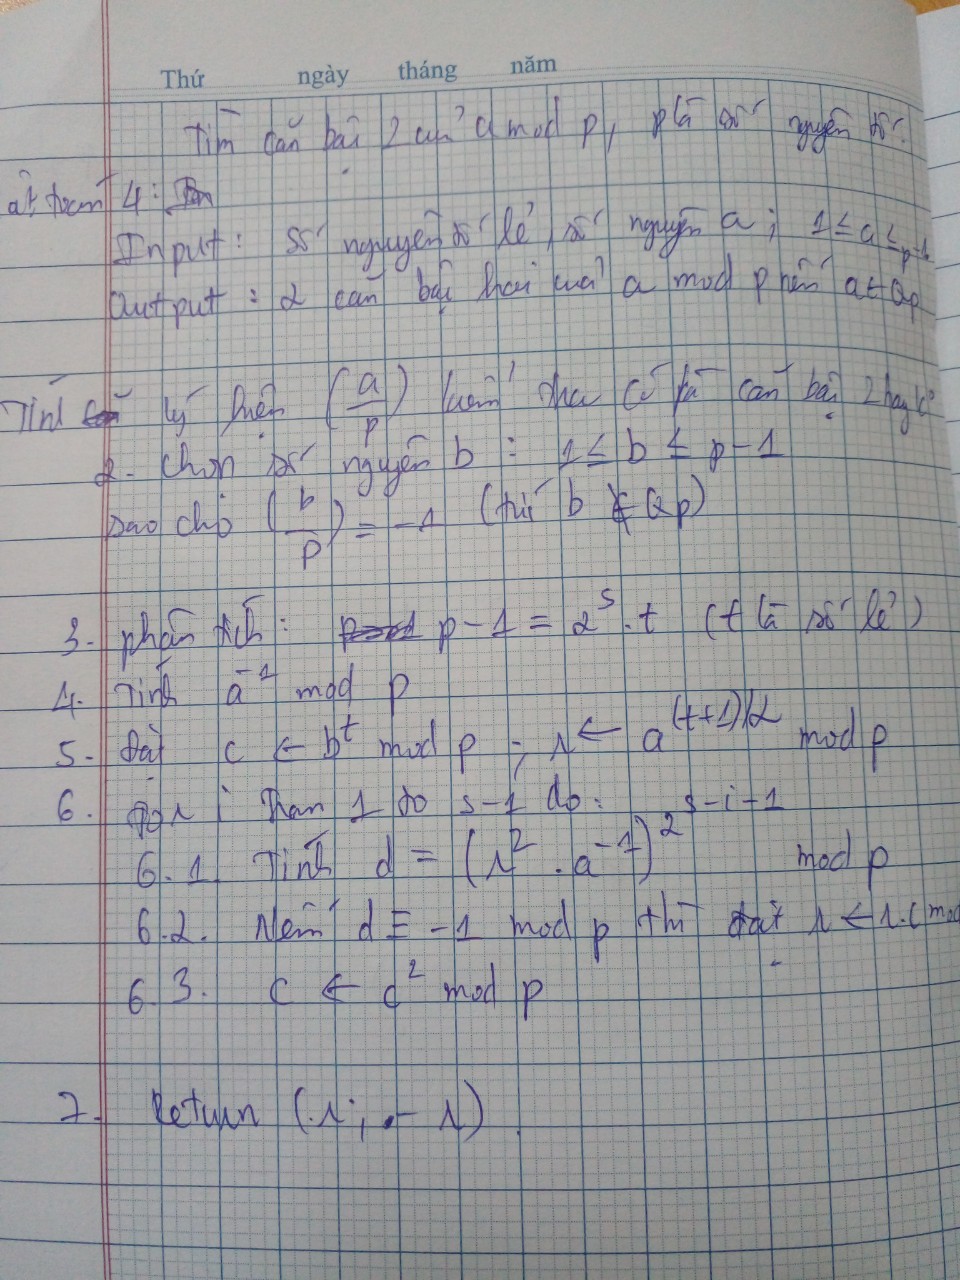 Thứ ngày tháng năm
Tìm căn bậc 2 của a mod p, p là số nguyên tố.
ật toán 4:
Input: số nguyên tố lẻ, số nguyên a; 1 ≤ a ≤ p-1
Output: 2 căn bậc hai của a mod p nếu a ∈ Qp
Tính ký hiệu (a/p) kiểm tra có là căn bậc 2 hay k
2. Chọn số nguyên b : 1 ≤ b ≤ p-1
sao cho (b/p) = -1 (tức b ∉ Qp)
3. phân tích: p-1 = 2^s . t (t là số lẻ)
4. Tính a^-1 mod p
5. Đặt c ← b^t mod p ; r ← a^(t+1)/2 mod p
6. For i 1 to s-1 do:
6.1. Tính d = (r^2 . a^-1)^2^s-i-1 mod p
6.2. Nếu d ≡ -1 mod p thì đặt r ← r.c (mod
6.3. c ← c^2 mod p
7. Return (r; -r)